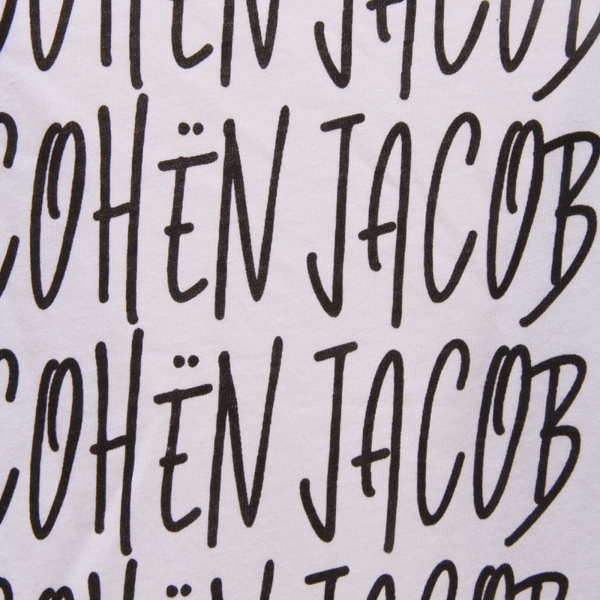 COHËN JACOB
COHËN JACOB
COHËN JACOB
COHËN JACOB